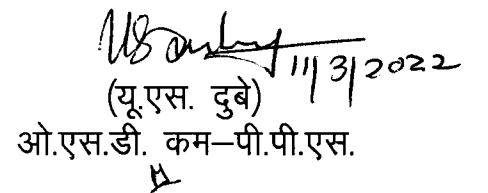 11/3/2022
(यू.एस. दुबे)
ओ.एस.डी. कम–पी.पी.एस.